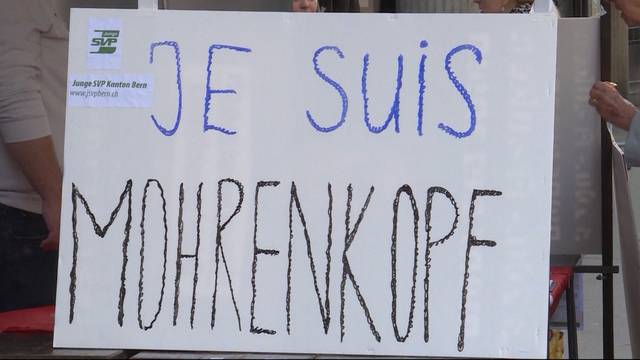 Junge
SVP
Junge SVP Kanton Bern
www.jsvpbern.ch
JE SUiS
MOHRENKOPF